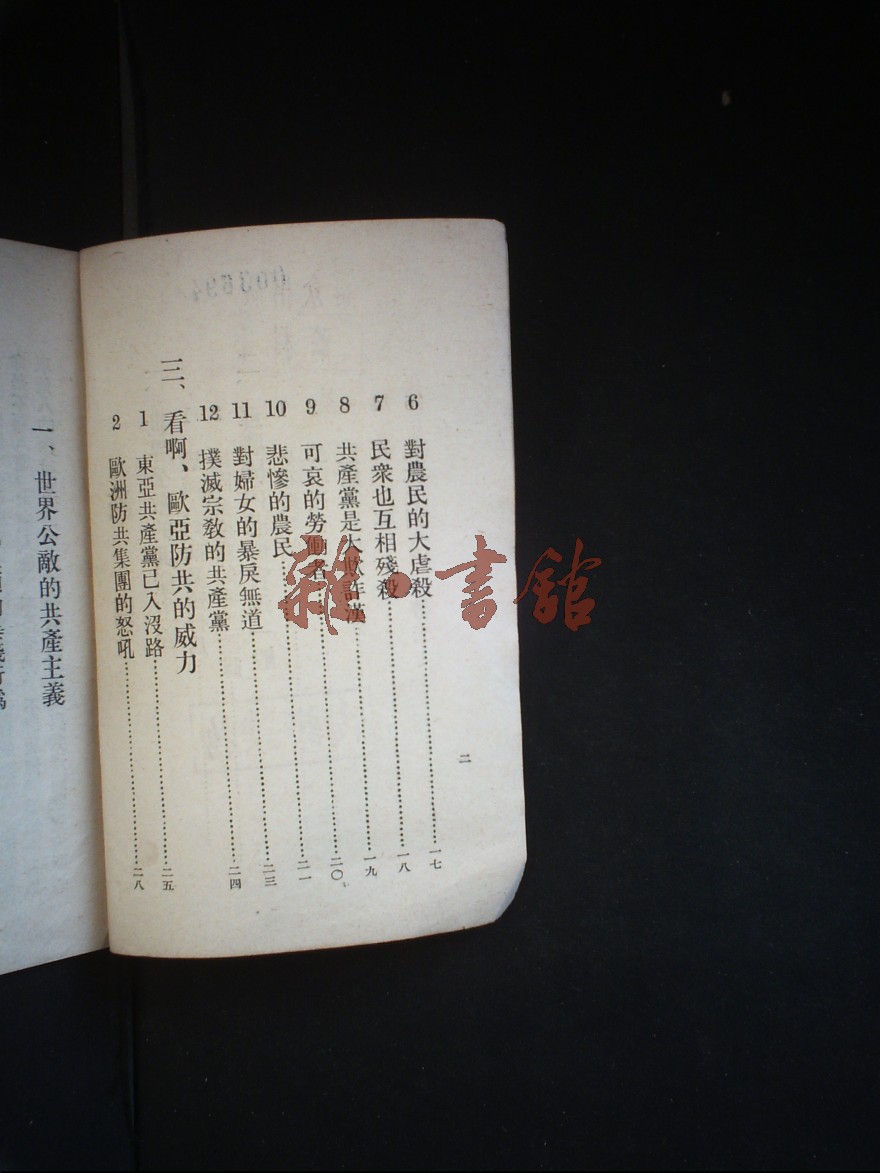 6 對農民的大虐殺……一七
7 民衆也互相殘殺……一八
8 共產黨是大欺詐漢……一九
9 可哀的勞働者……二〇
10 悲慘的農民……二一
11 對婦女的暴戾無道……二三
12 撲滅宗教的共產黨……二四
三、看啊、歐亞防共的威力
1 東亞共產黨已入沒路……二五
2 歐洲防共集團的怒吼……二八
二
003694
一、世界公敵的共產主義
雜·書館